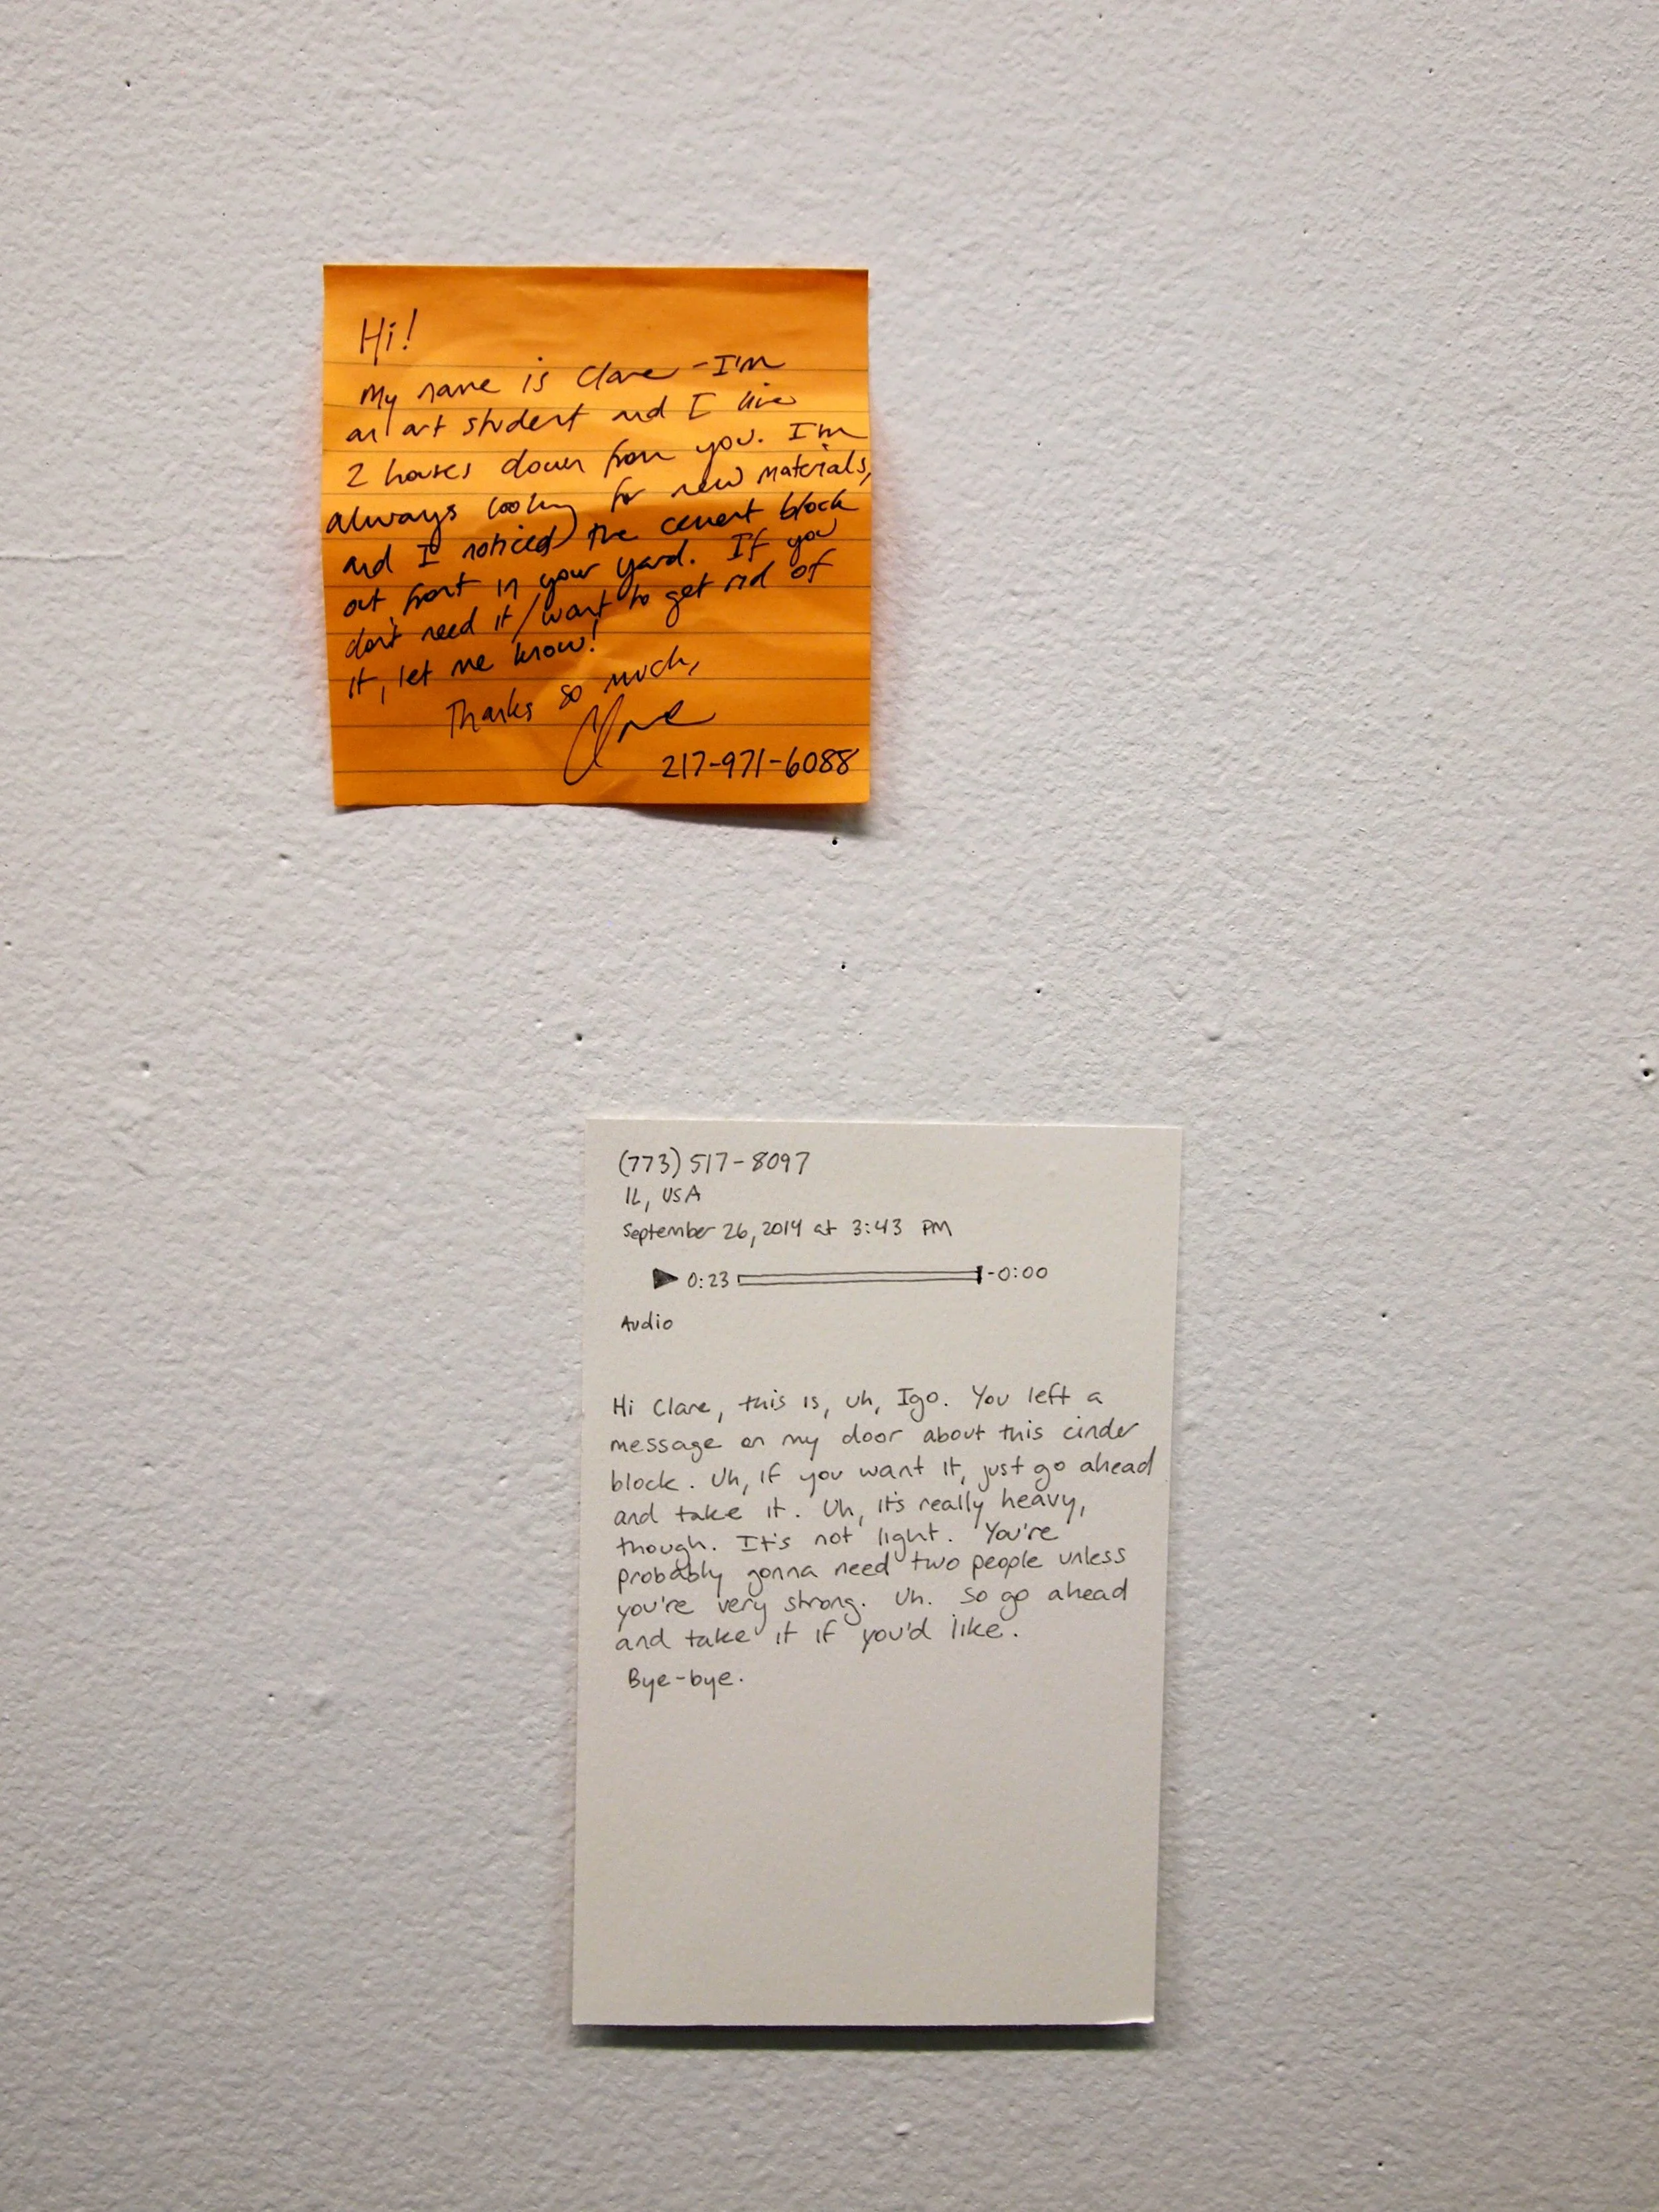 Hi!
My name is Clare - I'm
an art student and I live
2 houses down from you. I'm
always looking for new materials,
and I noticed the cement block
out front in your yard. If you
don't need it/want to get rid of
it, let me know!
Thanks so much,
Clare
217-971-6088
(773) 517-8097
IL, USA
September 26, 2014 at 3:43 PM
▶ 0:23 -0:00
Audio
Hi Clare, this is, uh, Igo. You left a
message on my door about this cinder
block. Uh, if you want it, just go ahead
and take it. Uh, it's really heavy,
though. It's not light. You're
probably gonna need two people unless
you're very strong. Uh. So go ahead
and take it if you'd like.
Bye-bye.